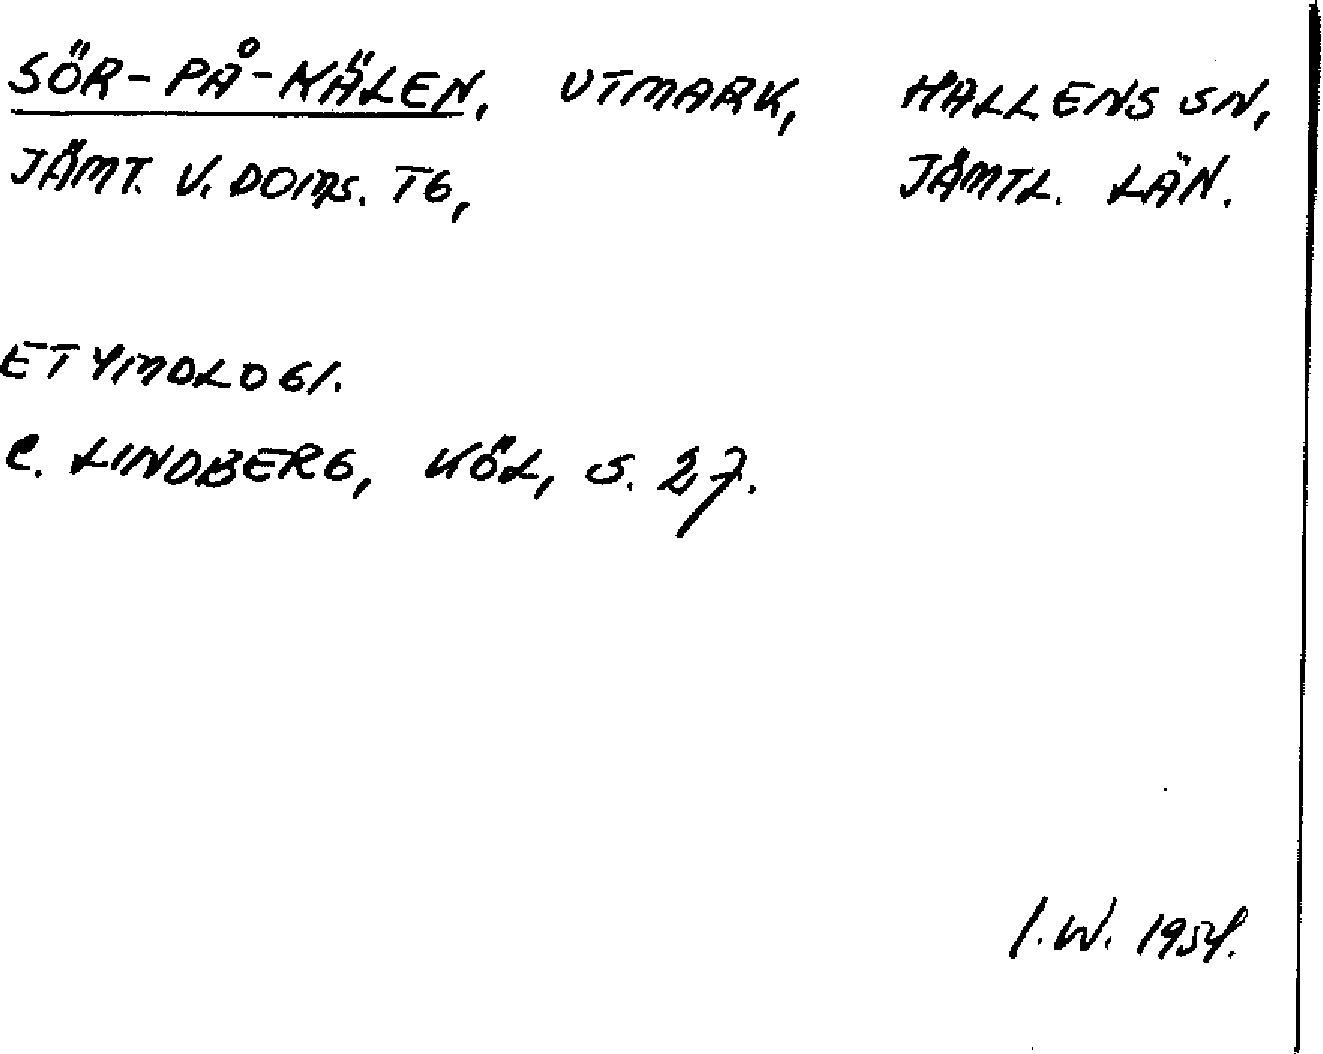 SÖR-PÅ-KÄLEN, UTMARK, HALLENS SN,
JÄMT. V. DOMS. TG, JÄMTL. LÄN.
ETYMOLOGI.
C. LINDBERG, KÖL, S. 27.
I.W. 1954.